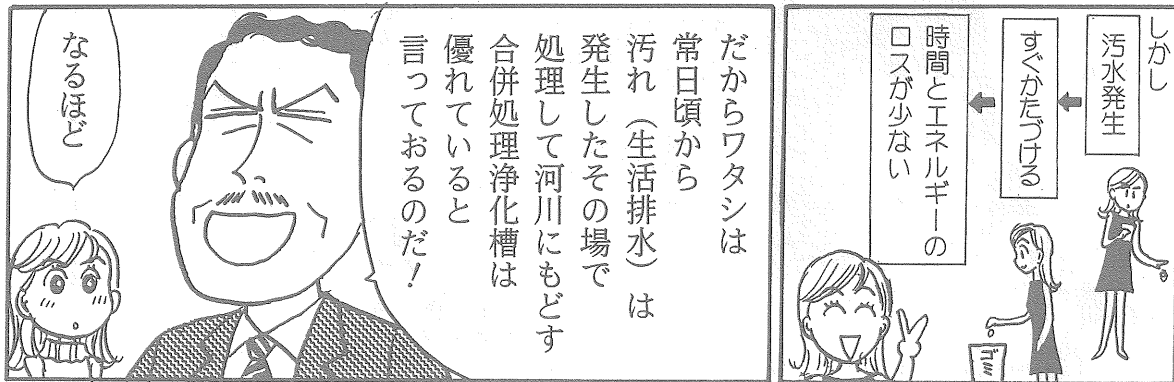 しかし
汚水発生
すぐかたづける
時間とエネルギーの
ロスが少ない
ゴミ
だからワタシは
常日頃から
汚れ（生活排水）は
発生したその場で
処理して河川にもどす
合併処理浄化槽は
優れていると
言っておるのだ！
なるほど